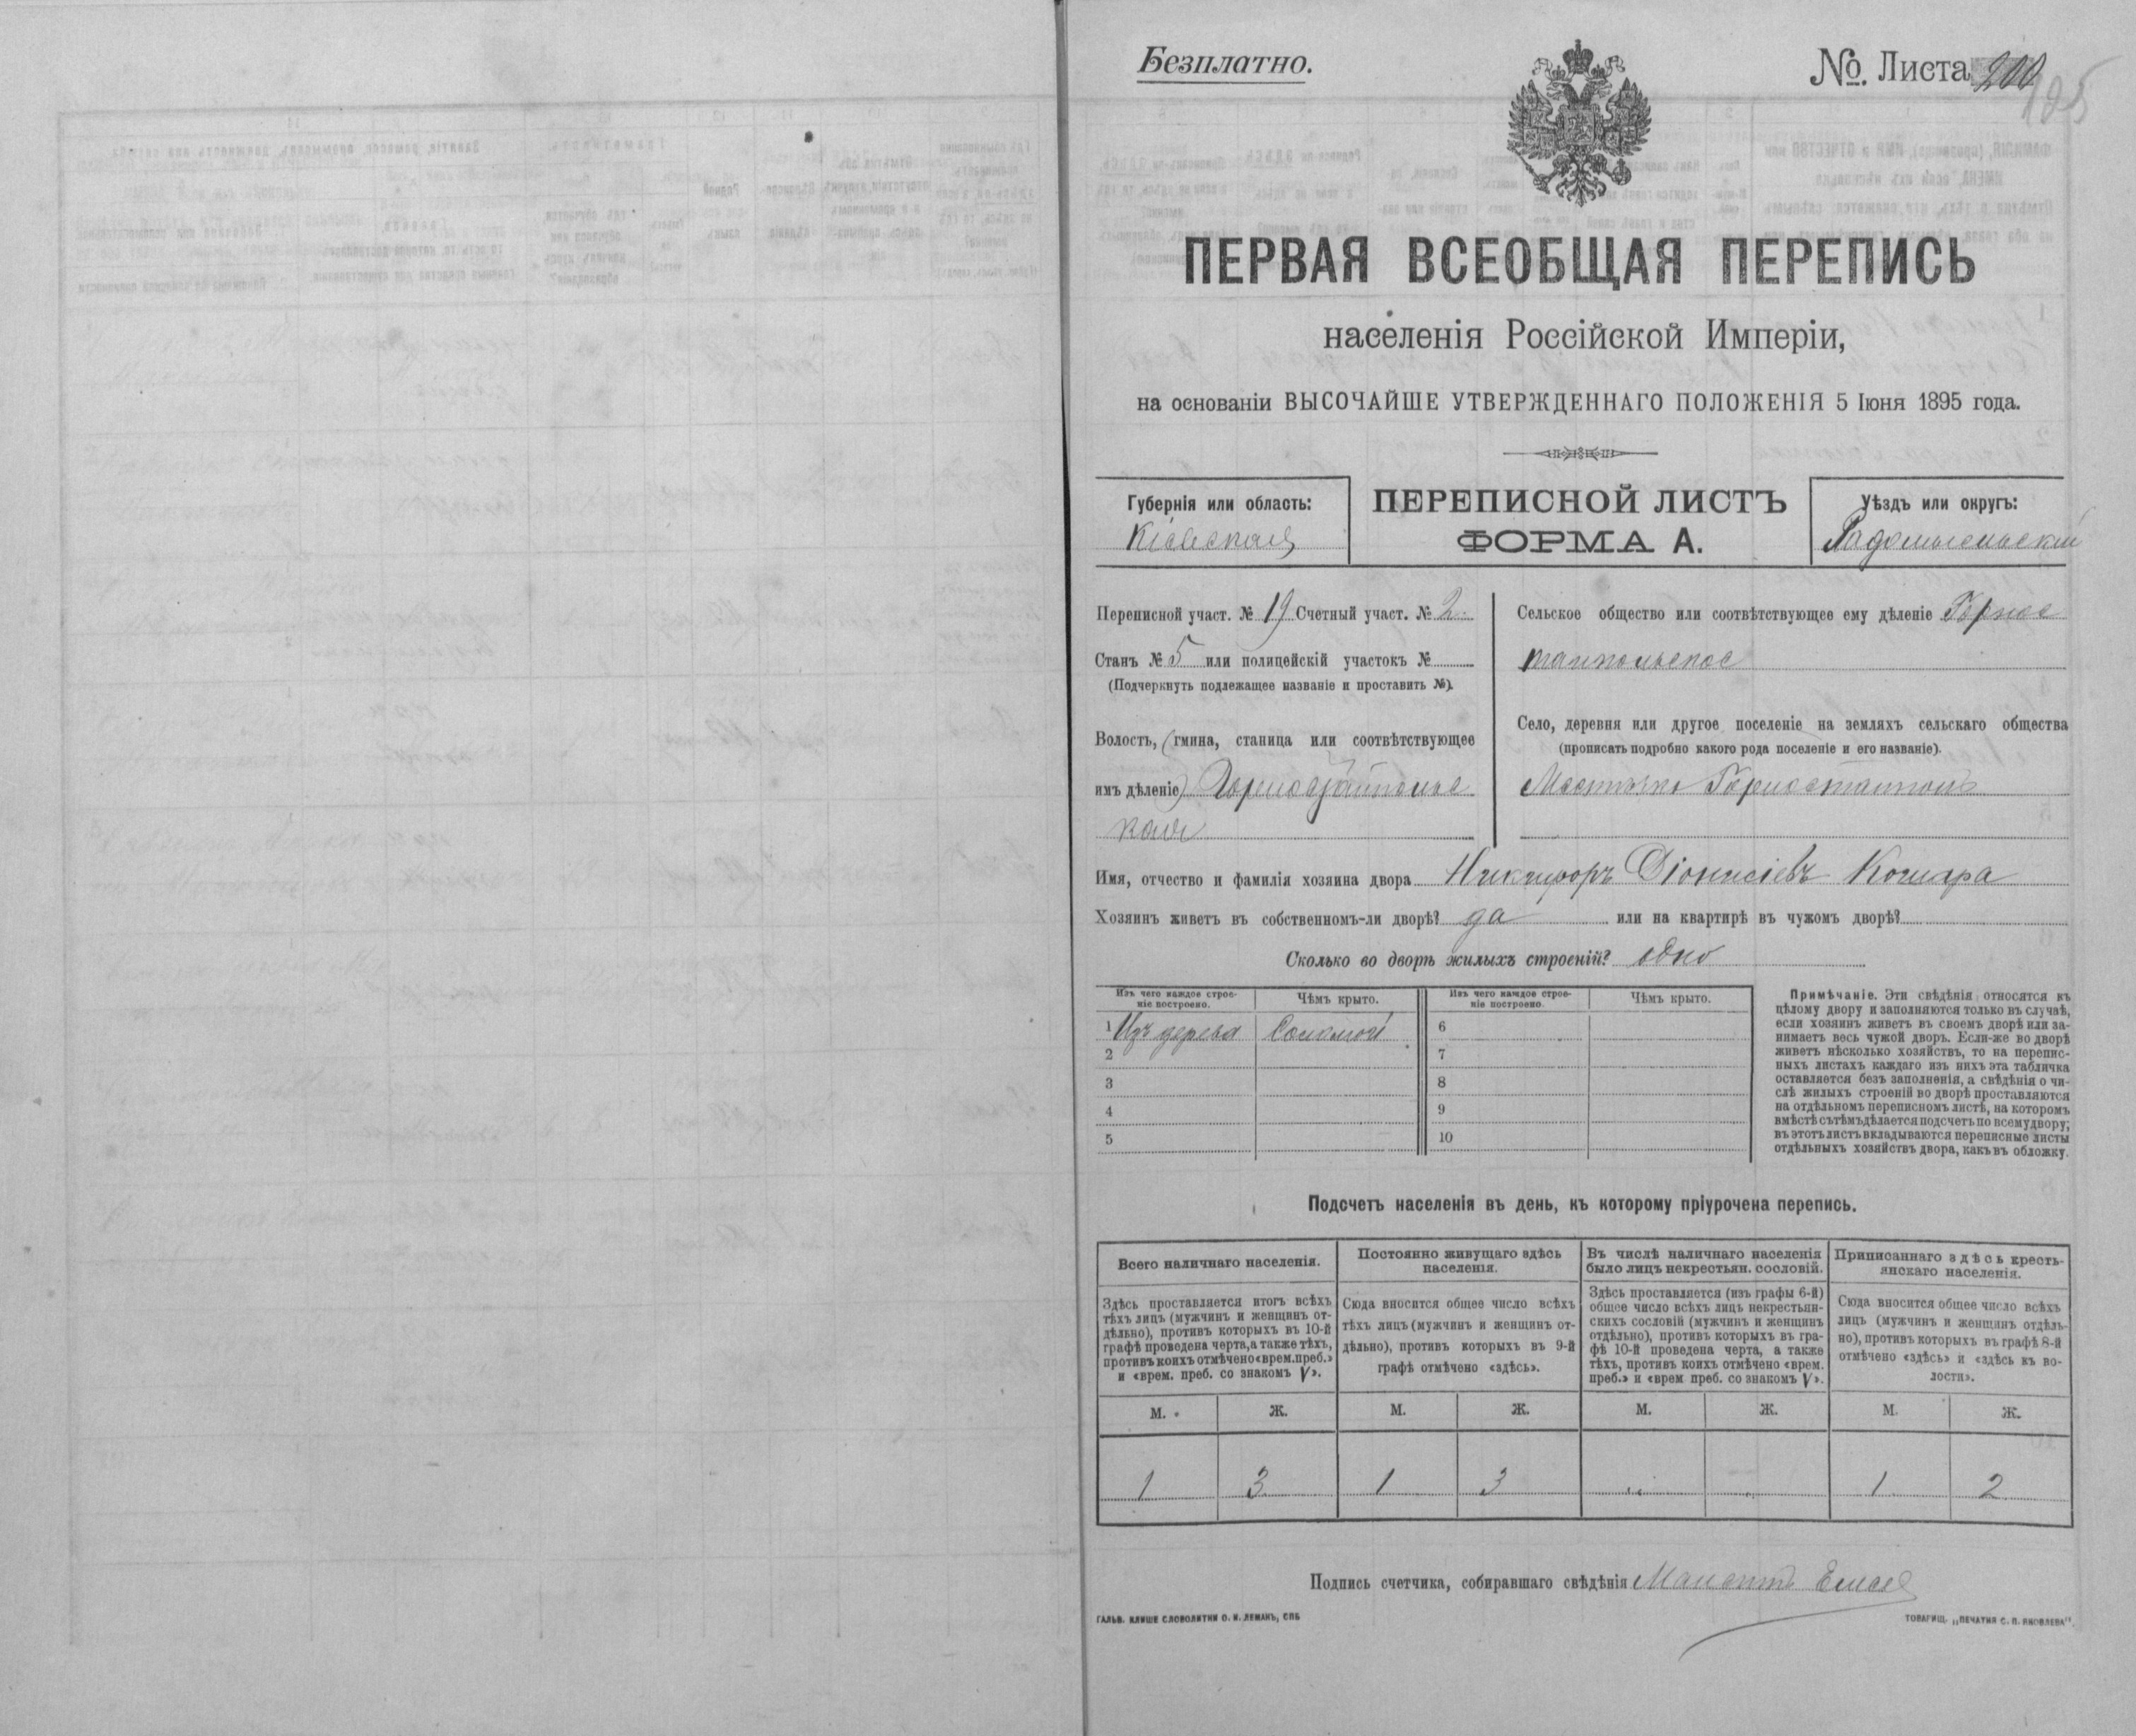 Безплатно.
№. Листа 200
195
ПЕРВАЯ ВСЕОБЩАЯ ПЕРЕПИСЬ
населенія Россійской Имперіи,
на основаніи ВЫСОЧАЙШЕ УТВЕРЖДЕННАГО ПОЛОЖЕНІЯ 5 Іюня 1895 года.
Губернія или область:
Кіевская
ПЕРЕПИСНОЙ ЛИСТЪ
ФОРМА А.
Уѣздъ или округъ:
Радомысльскій
Переписной участ. № 19 Счетный участ. № 2.
Станъ № 5 или полицейскій участокъ №
(Подчеркнуть подлежащее названіе и проставить №).
Волость, (гмина, станица или соотвѣтствующее
имъ дѣленіе) Горностайполь
ская
Сельское общество или соотвѣтствующее ему дѣленіе Горнос
тайпольское
Село, деревня или другое поселеніе на земляхъ сельскаго общества
(прописать подробно какого рода поселеніе и его названіе).
Мѣстечко Горностайполь
Имя, отчество и фамилія хозяина двора Никифоръ Діонисіевъ Кошара
Хозяинъ живетъ въ собственномъ-ли дворѣ? да или на квартирѣ въ чужомъ дворѣ?
Сколько во дворѣ жилыхъ строеній? одно
Изъ чего каждое строе-
ніе построено.
Чѣмъ крыто.
Изъ чего каждое строе-
ніе построено.
Чѣмъ крыто.
1 Изъ дерева Соломой 6
2 7
3 8
4 9
5 10
Примѣчаніе. Эти свѣдѣнія относятся къ
цѣлому двору и заполняются только въ случаѣ,
если хозяинъ живетъ въ своемъ дворѣ или за-
нимаетъ весь чужой дворъ. Если-же во дворѣ
живетъ нѣсколько хозяйствъ, то на перепис-
ныхъ листахъ каждаго изъ нихъ эта табличка
оставляется безъ заполненія, а свѣдѣнія о чи-
слѣ жилыхъ строеній во дворѣ проставляются
на отдѣльномъ переписномъ листѣ, на которомъ
вмѣстѣ съ тѣмъ дѣлается подсчетъ по всему двору;
въ этотъ листъ вкладываются переписные листы
отдѣльныхъ хозяйствъ двора, какъ въ обложку.
Подсчетъ населенія въ день, къ которому пріурочена перепись.
Всего наличнаго населенія.
Здѣсь проставляется итогъ всѣхъ
тѣхъ лицъ (мужчинъ и женщинъ от-
дѣльно), противъ которыхъ въ 10-й
графѣ проведена черта, а также тѣхъ,
противъ коихъ отмѣчено «врем. преб.»
и «врем. преб. со знакомъ V».
Постоянно живущаго здѣсь
населенія.
Сюда вносится общее число всѣхъ
тѣхъ лицъ (мужчинъ и женщинъ от-
дѣльно), противъ которыхъ въ 9-й
графѣ отмѣчено «здѣсь».
Въ числѣ наличнаго населенія
было лицъ некрестьян. сословій.
Здѣсь проставляется (изъ графы 6-й)
общее число всѣхъ лицъ некрестьян-
скихъ сословій (мужчинъ и женщинъ
отдѣльно), противъ которыхъ въ гра-
фѣ 10-й проведена черта, а также
тѣхъ, противъ коихъ отмѣчено «врем.
преб.» и «врем преб. со знакомъ V».
Приписаннаго здѣсь кресть-
янскаго населенія.
Сюда вносится общее число всѣхъ
лицъ (мужчинъ и женщинъ отдѣль-
но), противъ которыхъ въ графѣ 8-й
отмѣчено «здѣсь» и «здѣсь къ во-
лости».
М. Ж. М. Ж. М. Ж. М. Ж.
1 3 1 3 „ „ 1 2
Подпись счетчика, собиравшаго свѣдѣнія
ГАЛЬВ. КЛИШЕ СЛОВОЛИТНИ О. И. ЛЕМАНЪ, СПБ
ТОВАРИЩ. „ПЕЧАТНЯ С. П. ЯКОВЛЕВА".